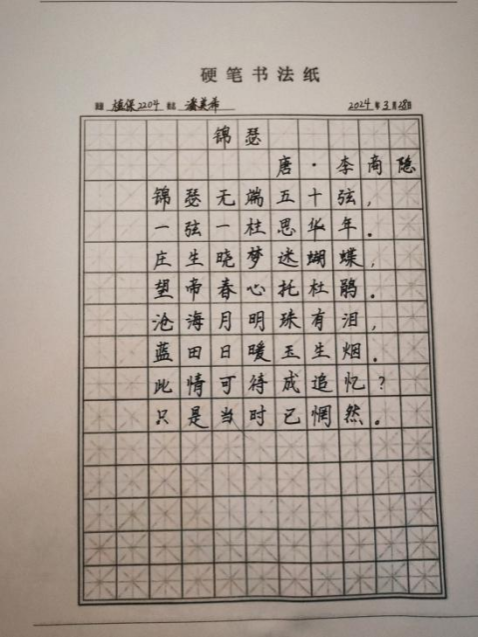 硬笔书法纸
2204 2024年3月28日
锦瑟
唐·李商隐
锦瑟无端五十弦,
一弦一柱思华年.
庄生晓梦迷蝴蝶,
望帝春心托杜鹃.
沧海月明珠有泪,
蓝田日暖玉生烟.
此情可待成追忆?
只是当时已惘然.